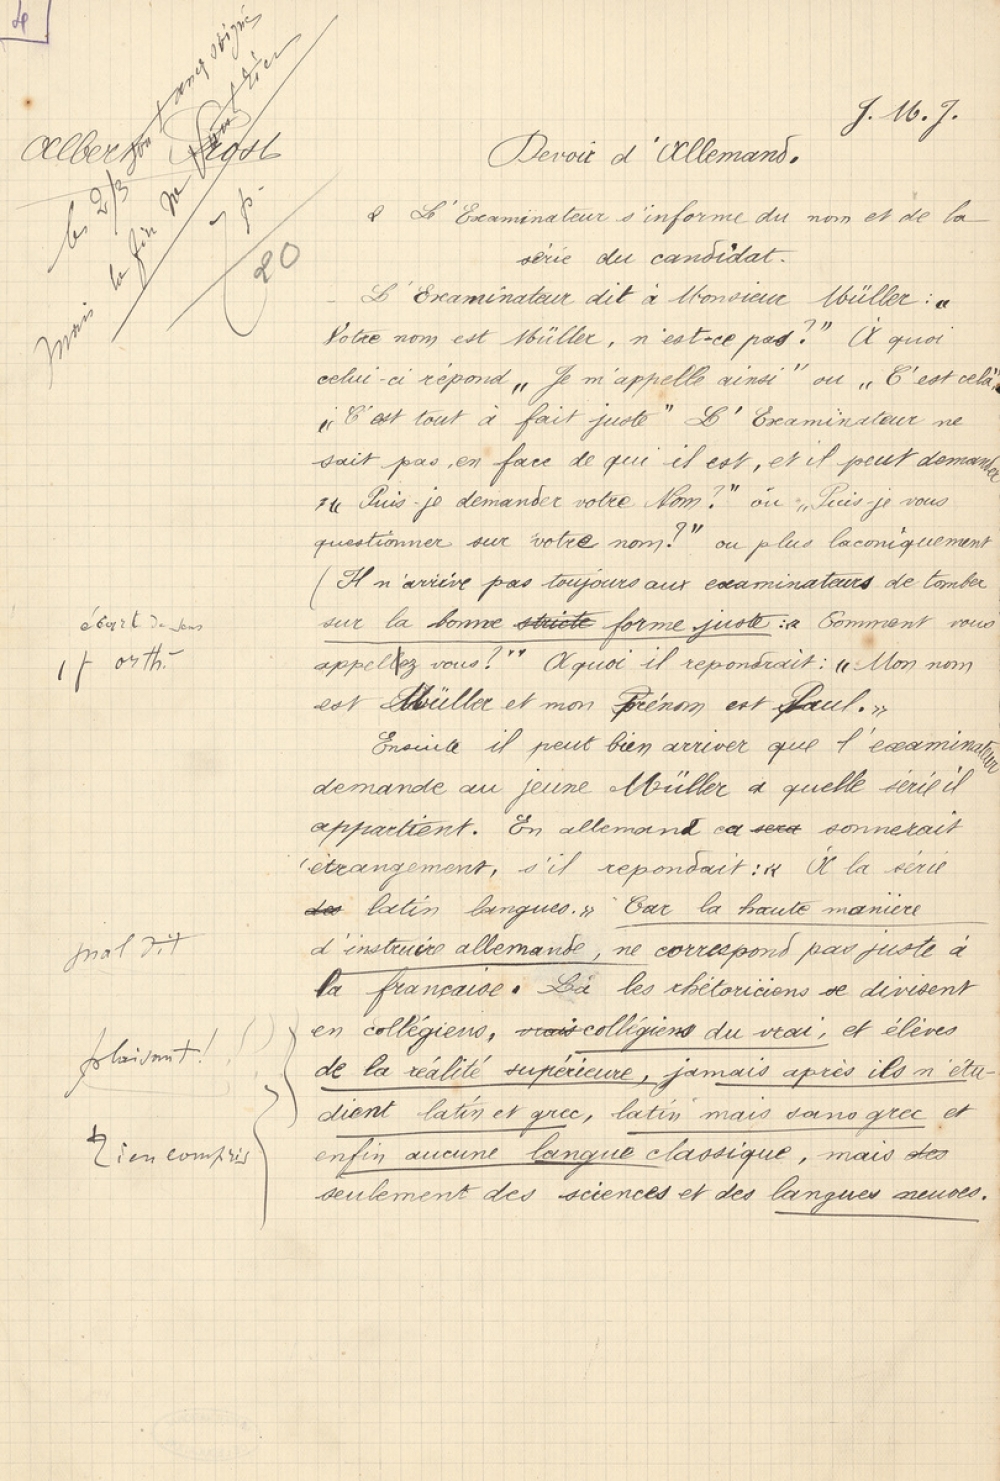 J. M. J.
Albert Prost
bon assez soigné
les 2/3
mais la fin
20
Devoir d'Allemand.
L'Examinateur s'informe du nom et de la
série du candidat.
L'Examinateur dit à Monsieur Müller : «
Votre nom est Müller, n'est-ce pas ?" À quoi
celui-ci répond „ Je m'appelle ainsi " ou „ C'est cela"
„ C'est tout à fait juste " L'Examinateur ne
sait pas, en face de qui il est, et il peut demander
: « Puis-je demander votre Nom ?" ou „ Puis-je vous
questionner sur votre nom ?" ou plus laconiquement
( Il n'arrive pas toujours aux examinateurs de tomber
écart de sens
sur la bonne stricte forme juste : « Comment vous
1 f orth.
appellez vous ? " A quoi il repondrait : « Mon nom
est Müller et mon Prénom est Paul. »
Ensuite il peut bien arriver que l'examinateur
demande au jeune Müller a quelle série il
appartient. En allemand ca sera sonnerait
étrangement, s'il repondait : « À la série
des latin langues. » Car la haute manière
mal dit
d'instruire allemande, ne correspond pas juste à
la française. Là les rhétoriciens se divisent
en collégiens, vrais collégiens du vrai, et élèves
plaisant !
de la réalité supérieure, jamais après ils n'étu-
dient latin et grec, latin mais sans grec et
rien compris
enfin aucune langue classique, mais des
seulement des sciences et des langues neuves.